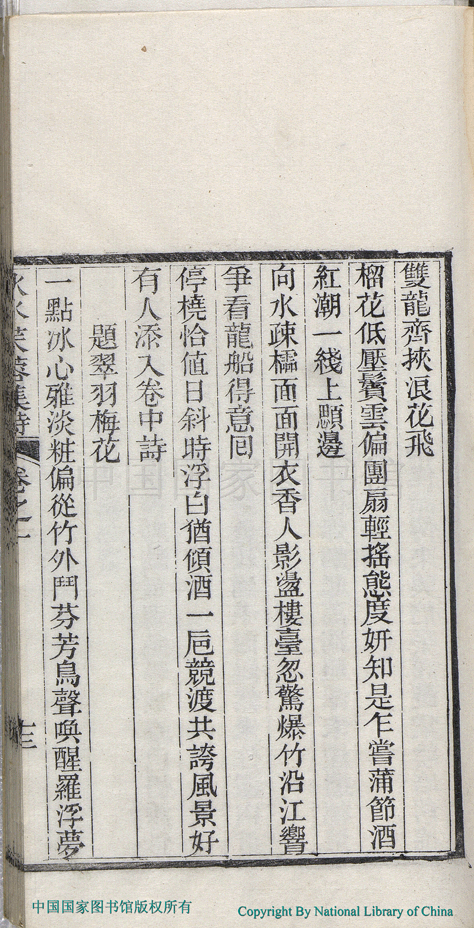 雙龍齊挾浪花飛
榴花低壓鬢雲偏團扇輕搖態度妍知是乍嘗蒲節酒
紅潮一綫上顋邊
向水疎櫺面面開衣香人影盪樓臺忽驚爆竹沿江響
爭看龍船得意囘
停橈恰值日斜時浮白猶傾酒一巵競渡共誇風景好
有人添入卷中詩
題翠羽梅花
一點冰心雅淡粧偏從竹外鬥芬芳鳥聲喚醒羅浮夢
水芙蓉集詩 卷之 十三
中国国家
中国国家图书馆版权所有
Copyright By National Library of China